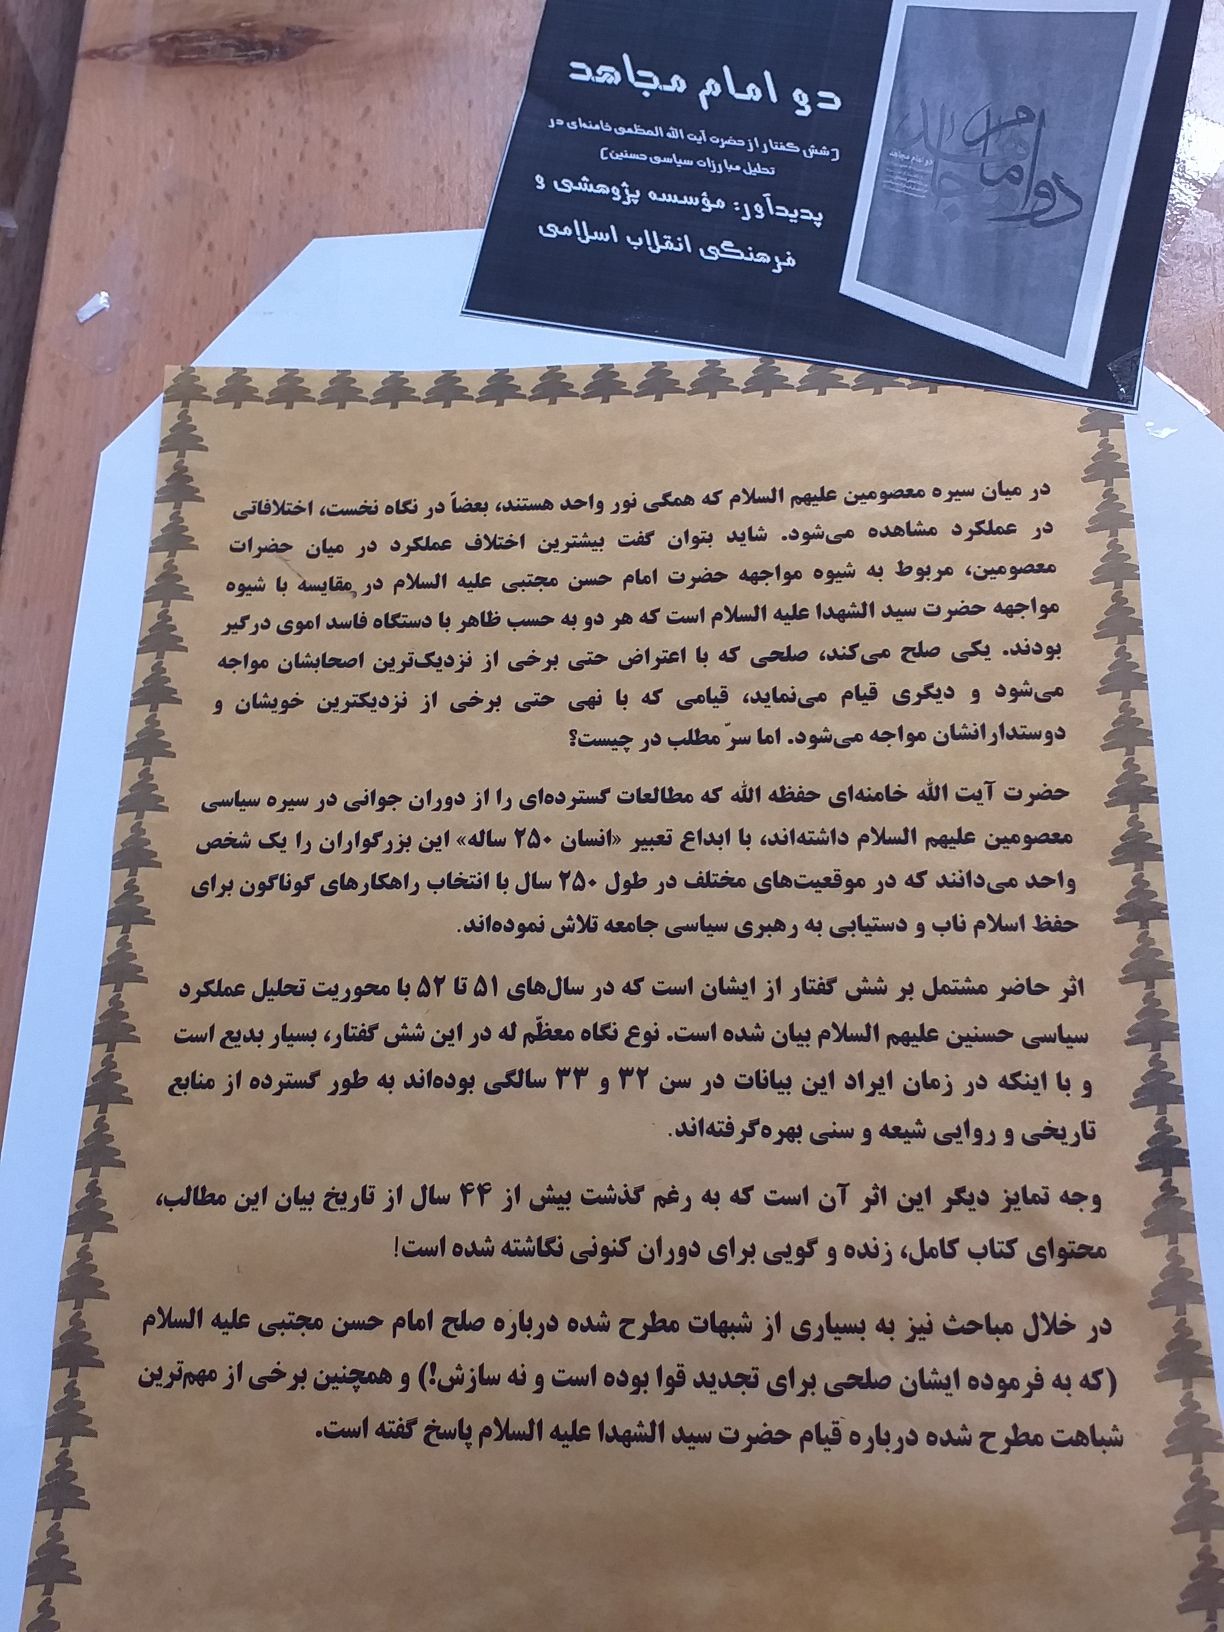 دو امام مجاهد
(شش گفتار از حضرت آیت الله العظمی خامنه‌ای در
تحلیل مبارزات سیاسی حسنین)
پدیدآور: مؤسسه پژوهشی و
فرهنگی انقلاب اسلامی
دو امام مجاهد
دو امام مجاهد
در میان سیره معصومین علیهم السلام که همگی نور واحد هستند، بعضاً در نگاه نخست، اختلافاتی
در عملکرد مشاهده می‌شود. شاید بتوان گفت بیشترین اختلاف عملکرد در میان حضرات
معصومین، مربوط به شیوه مواجهه حضرت امام حسن مجتبی علیه السلام در مقایسه با شیوه
مواجهه حضرت سید الشهدا علیه السلام است که هر دو به حسب ظاهر با دستگاه فاسد اموی درگیر
بودند. یکی صلح می‌کند، صلحی که با اعتراض حتی برخی از نزدیک‌ترین اصحابشان مواجه
می‌شود و دیگری قیام می‌نماید، قیامی که با نهی حتی برخی از نزدیکترین خویشان و
دوستدارانشان مواجه می‌شود. اما سرّ مطلب در چیست؟
حضرت آیت الله خامنه‌ای حفظه الله که مطالعات گسترده‌ای را از دوران جوانی در سیره سیاسی
معصومین علیهم السلام داشته‌اند، با ابداع تعبیر «انسان ۲۵۰ ساله» این بزرگواران را یک شخص
واحد می‌دانند که در موقعیت‌های مختلف در طول ۲۵۰ سال با انتخاب راهکارهای گوناگون برای
حفظ اسلام ناب و دستیابی به رهبری سیاسی جامعه تلاش نموده‌اند.
اثر حاضر مشتمل بر شش گفتار از ایشان است که در سال‌های ۵۱ تا ۵۲ با محوریت تحلیل عملکرد
سیاسی حسنین علیهم السلام بیان شده است. نوع نگاه معظّم له در این شش گفتار، بسیار بدیع است
و با اینکه در زمان ایراد این بیانات در سن ۳۲ و ۳۳ سالگی بوده‌اند به طور گسترده از منابع
تاریخی و روایی شیعه و سنی بهره‌گرفته‌اند.
وجه تمایز دیگر این اثر آن است که به رغم گذشت بیش از ۴۴ سال از تاریخ بیان این مطالب،
محتوای کتاب کامل، زنده و گویی برای دوران کنونی نگاشته شده است!
در خلال مباحث نیز به بسیاری از شبهات مطرح شده درباره صلح امام حسن مجتبی علیه السلام
(که به فرموده ایشان صلحی برای تجدید قوا بوده است و نه سازش!) و همچنین برخی از مهم‌ترین
شباهت مطرح شده درباره قیام حضرت سید الشهدا علیه السلام پاسخ گفته است.